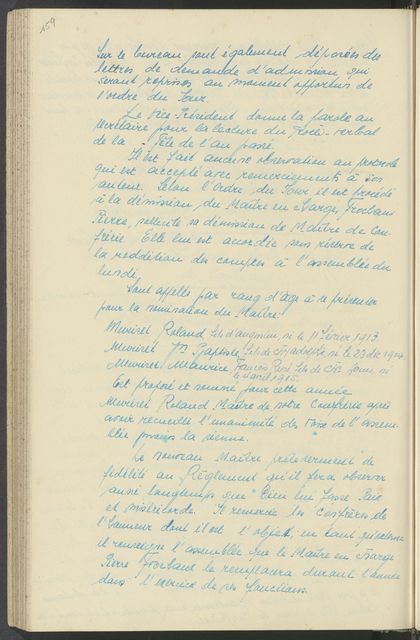 159
Sur le bureau sont également déposées des
lettres de demande d'admission qui
seront reprises au moment opportun de
l'ordre du Jour.
Le Vice Président donne la parole au
secrétaire pour la lecture du procès-verbal
de la Fête de l'an passé.
Il n'est fait aucune observation au protocole
qui est accepté avec remerciements à son
auteur. Selon l'Ordre du Jour il est procédé
à la démission du Maître en charge,
Pierre, sollicite sa démission de Maître de Con-
frérie. Elle lui est accordée sous réserve de
la reddition des comptes à l'assemblée du
lundi.
Sont appelés par rang d'âge à se présenter
pour la nomination du Maître:
Roland, fils d'Augustin, né le 11 février 1913
J. Baptiste, fils de né le 23 déc 1914
Maurice François René fils de né
le 4 avril 1915.
Est proposé et nommé pour cette année
Roland, Maître de notre Confrérie après
avoir recueilli l'unanimité des voix de l'assem-
blée la sienne.
Le nouveau Maître prête serment de
fidélité au Règlement qu'il fera observer
aussi longtemps que Dieu lui Paix
et miséricorde. Il remercie les confrères de
l'honneur dont il est l'objet, en tant que
il renseigne l'assemblée que le Maître en charge
Pierre le remplacera durant l'année
dans l'exercice de ses fonctions.